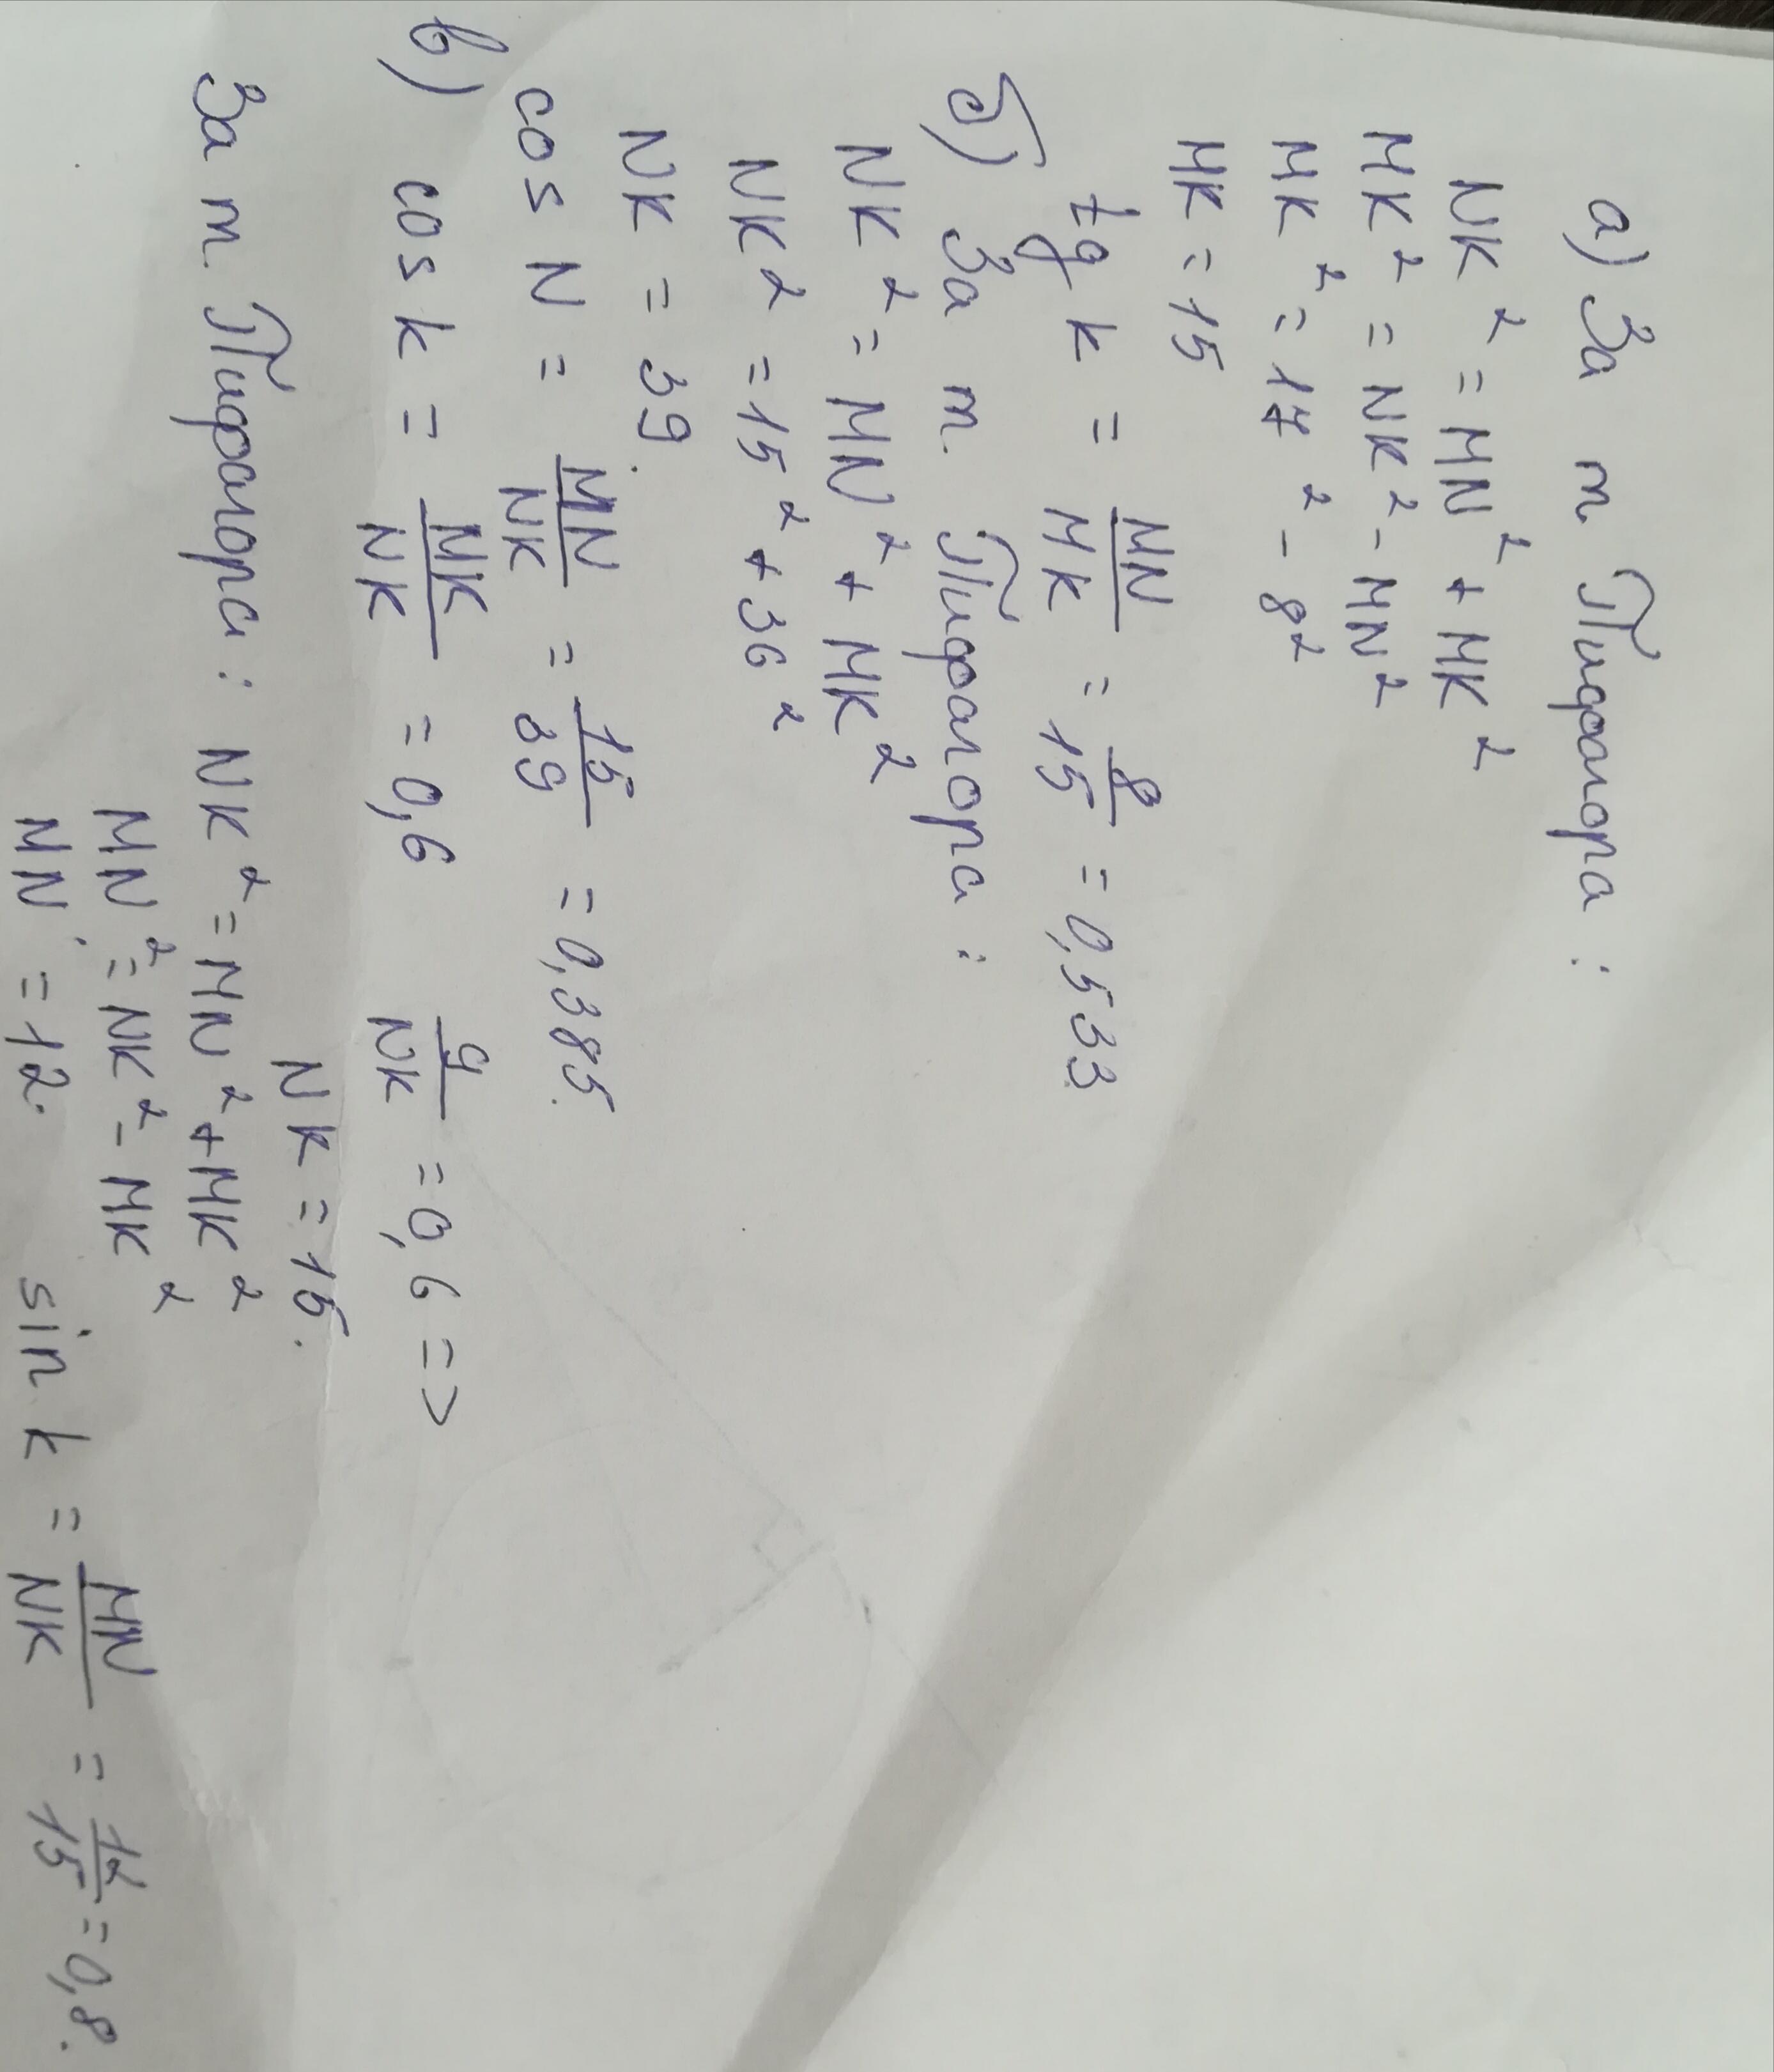 а) За т Піфагора:
NK² = MN² + MK²
MK² = NK² - MN²
MK² = 17² - 8²
MK = 15
tg k = MN/MK = 8/15 = 0,533
б) За т. Піфагора:
NK² = MN² + MK²
NK² = 15² + 36²
NK = 39.
cos N = MN/NK = 15/39 = 0,385.
в) cos k = MK/NK = 0,6 9/NK = 0,6 =>
NK = 15.
За т. Піфагора: NK² = MN² + MK²
MN² = NK² - MK²
MN = 12. sin k = MN/NK = 12/15 = 0,8.